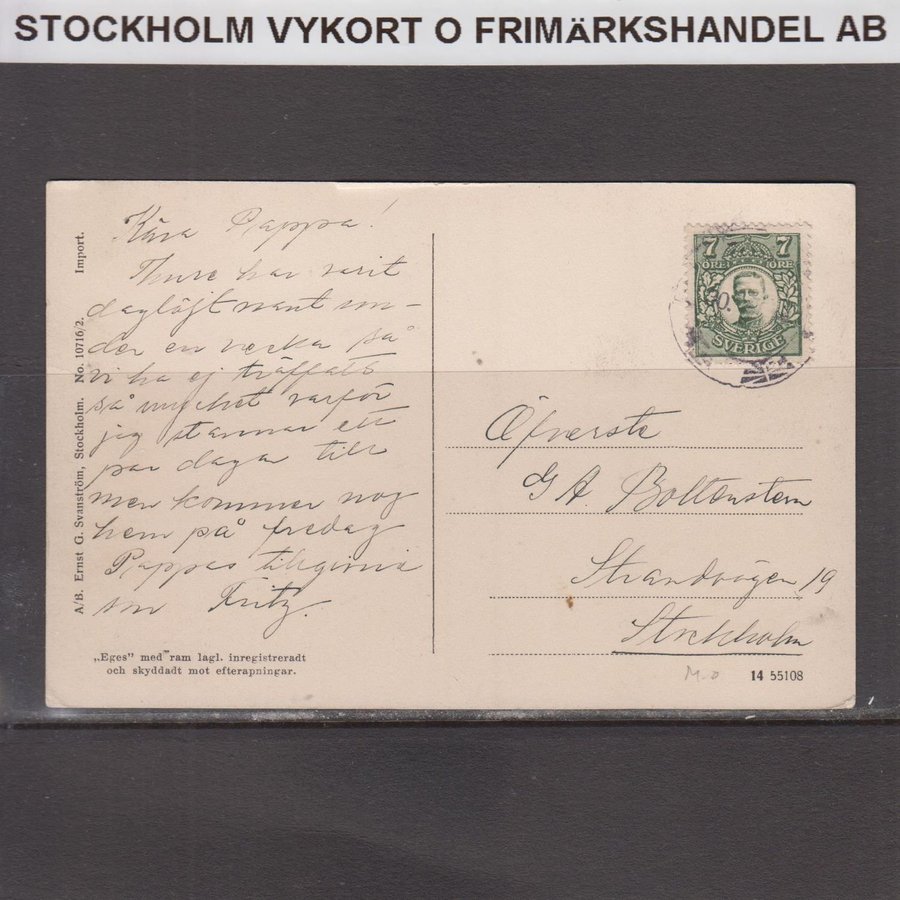 STOCKHOLM VYKORT O FRIMÄRKSHANDEL AB
Kära Pappa!
Thure har varit
dagligt vant un-
der en vecka så
vi ha ej träffats
så mycket varför
jag stannar ett
par dagar till
men kommer nog
hem på fredag
Pappas tillgivna
son Fritz.
A/B. Ernst G. Svanström, Stockholm. No. 10716/2. Import.
„Eges" med ram lagl. inregistreradt
och skyddadt mot efterapningar.
7 7
ÖRE ÖRE
SVERIGE
Öfverste
G A. Boltenstern
Strandvägen 19
Stockholm
14 55108